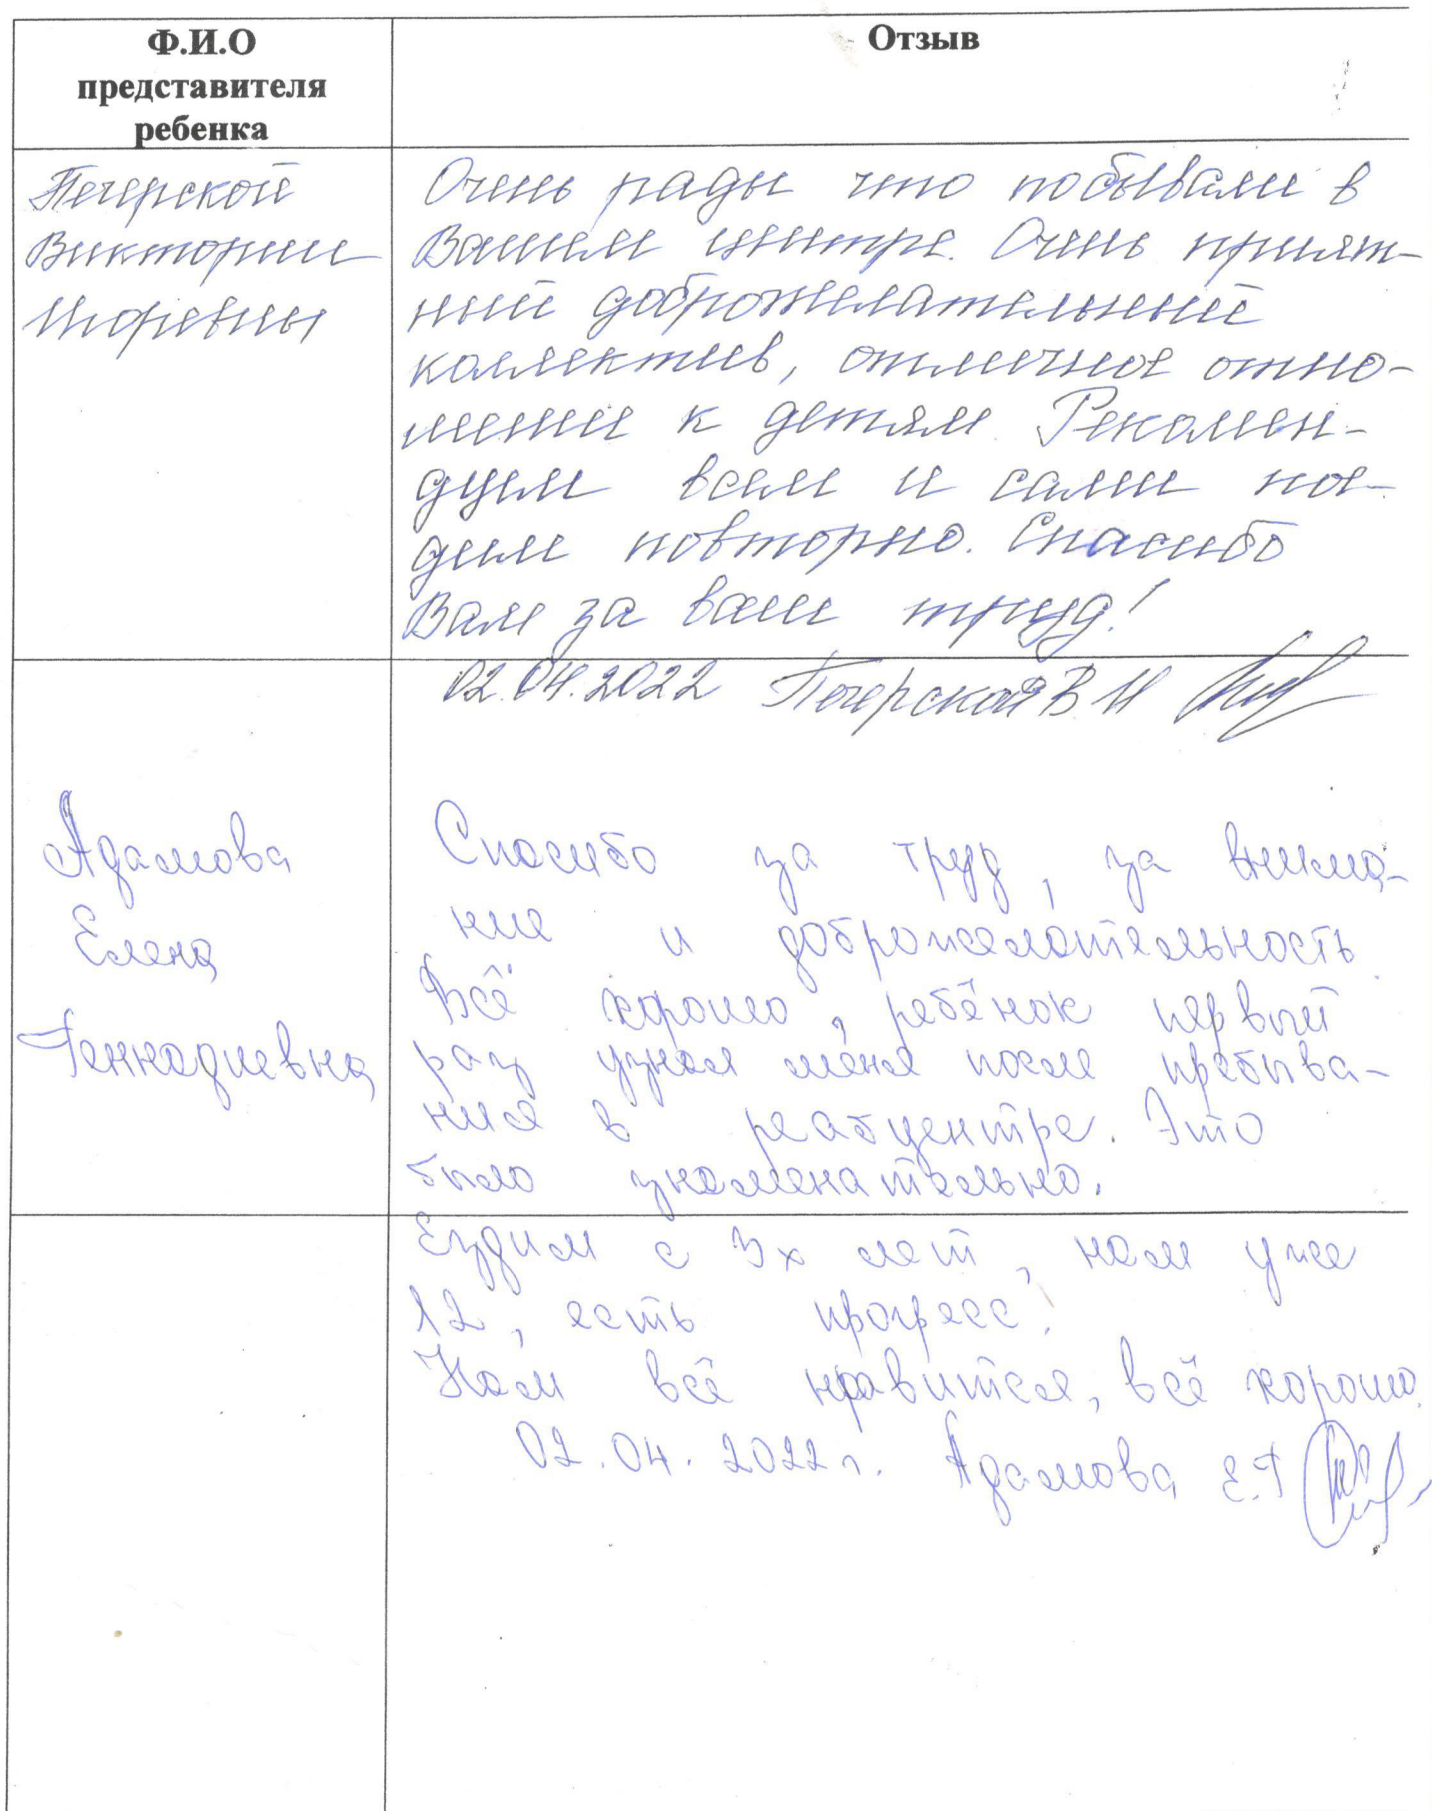 Ф.И.О
представителя
ребенка
Отзыв
Печерской
Виктории
Игоревны
Очень рады что побывали в
Вашем центре. Очень прият-
ный доброжелательный
коллектив, отличное отно-
шение к детям. Рекомен-
дуем всем и сами пое-
дем повторно. Спасибо
Вам за ваш труд!
02.04.2022 Печерская В И
Адамова
Елена
Геннадиевна
Спасибо за труд, за внима-
ние и доброжелательность.
Всё хорошо, ребёнок первый
раз узнал меня после пребыва-
ния в реабцентре. Это
было знаменательно.
Ездим с 3х лет, нам уже
12, есть прогресс!
Нам всё нравится, всё хорошо.
02.04.2022г. Адамова Е.Г